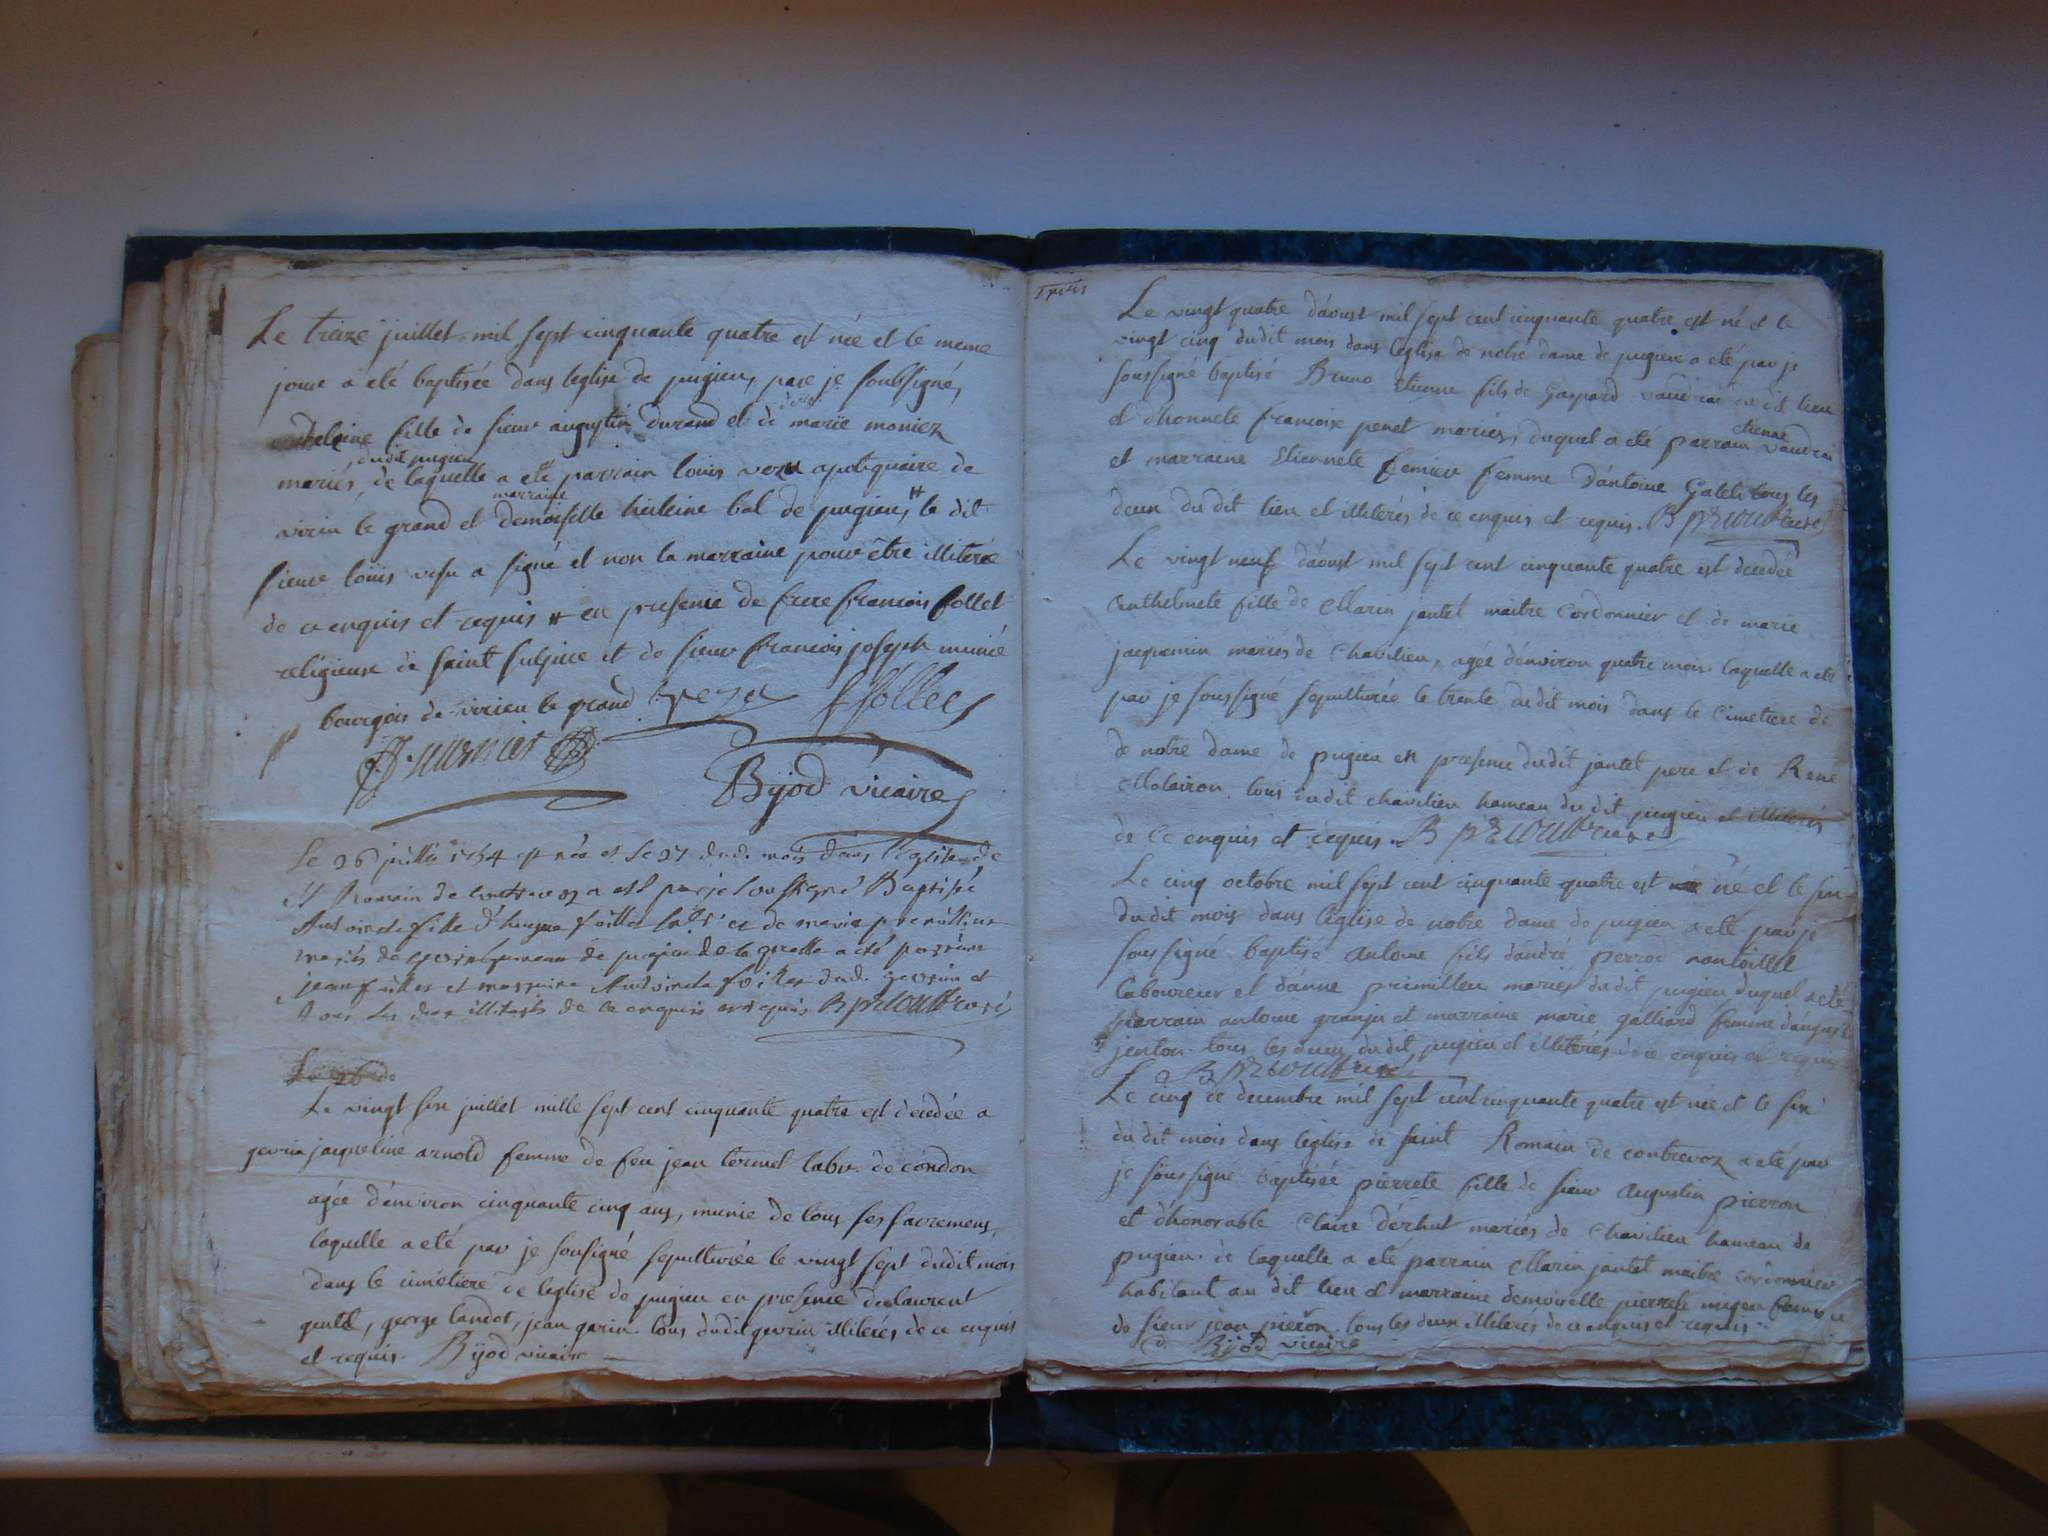 Le treize juillet mil sept cinquante quatre est née et le meme
jour a été baptisée dans leglise de pugieu, par je soubsigné,
fille de sieur augustin durand et de delle marie moniez
mariés dudit pugieu, de laquelle a eté parrain louis vezu apotiquaire de
virieu le grand et marraine demoiselle heileine bal de pugieu, # le dit
sieur louis vesu a signé et non la marraine pour être illiterée
de ce enquis et requis # en presence de frere francois follet
religieux de saint sulpice et de sieur francois joseph
bourgois de virieu le grand
Bijod vicaire
Le 26 juillet 1754 est née et le 27 dud. mois dans l'eglise de
st Romain de contrevoz a esté par je soussigné Baptisée
fille d' fuillet lab.r et de marie
mariés de hameau de pugieu de laquelle a été parrain
jean et marraine dud. et
tous les deux illiterés de ce enquis et requis B prioult curé
Le 26 de
Le vingt six juillet mille sept cent cinquante quatre est decedée a
gevrin jaqueline arnold femme de feu jean lab.r de condon
agée d'énviron cinquante cinq ans, munie de tous ses sacremens,
laquelle a eté par je sousigné sepulturée le vingt sept dudit mois
dans le cimétiere de leglise de pugieu en presence de laurent
george landot, jean garin tous dudit gevrin illiterés de ce enquis
et requis. Bijod vicaire
Le vingt quatre d'áoust mil sept cent cinquante quatre est né et le
vingt cinq dudit mois dans leglise de notre dame de pugieu a eté par je
soussigné baptisé Bruno Etienne fils de Gaspard vaudrai du dit lieu
et d'honnete francoise penet mariés, duquel a eté parrain etienne vaudrai
et marraine Etiennete femme d'antoine tous les
deux du dit lieu et illiterés de ce enquis et requis. B prioult curé
Le vingt neuf d'áoust mil sept cent cinquante quatre est decedée
Anthelmete fille de Marin jantet maitre cordonnier et de marie
jacquemin mariés de Chavilieu, agée d'énviron quatre mois laquelle a eté
par je soussigné sepulturée le trente dudit mois dans le cimetiere de
de notre dame de pugieu en presence dudit jantet pere et de René
tous dudit chavilieu hameau du dit pugieu et illiterés
de ce enquis et requis. B prioult curé
Le cinq octobre mil sept cent cinquante quatre est né et le six
dudit mois dans l'églîse de notre dame de pugieu a eté par je
soussigné baptisé antoine fils d'andré perrod
laboureur et d'anne primilleu mariés dudit pugieu duquel a eté
parrain antoine et marraine marie galliard femme
jenton tous les deux dudit pugieu et illiterés de ce enquis et requis
B prioult curé
Le cinq de decembre mil sept cent cinquante quatre est née et le six
du dit mois dans leglise de saint Romain de contrevoz a eté par
je soussigné baptisée pierrete fille de sieur augustin pierron
et d'honorable Claire mariés de Chavilieu hameau de
pugieu. de laquelle a eté parrain Marin jantet maitre cordonnier
habitant au dit lieu et marraine demoiselle pierrete femme
de sieur jean pieron tous les deux illiterés de ce enquis et requis
Bijod vicaire